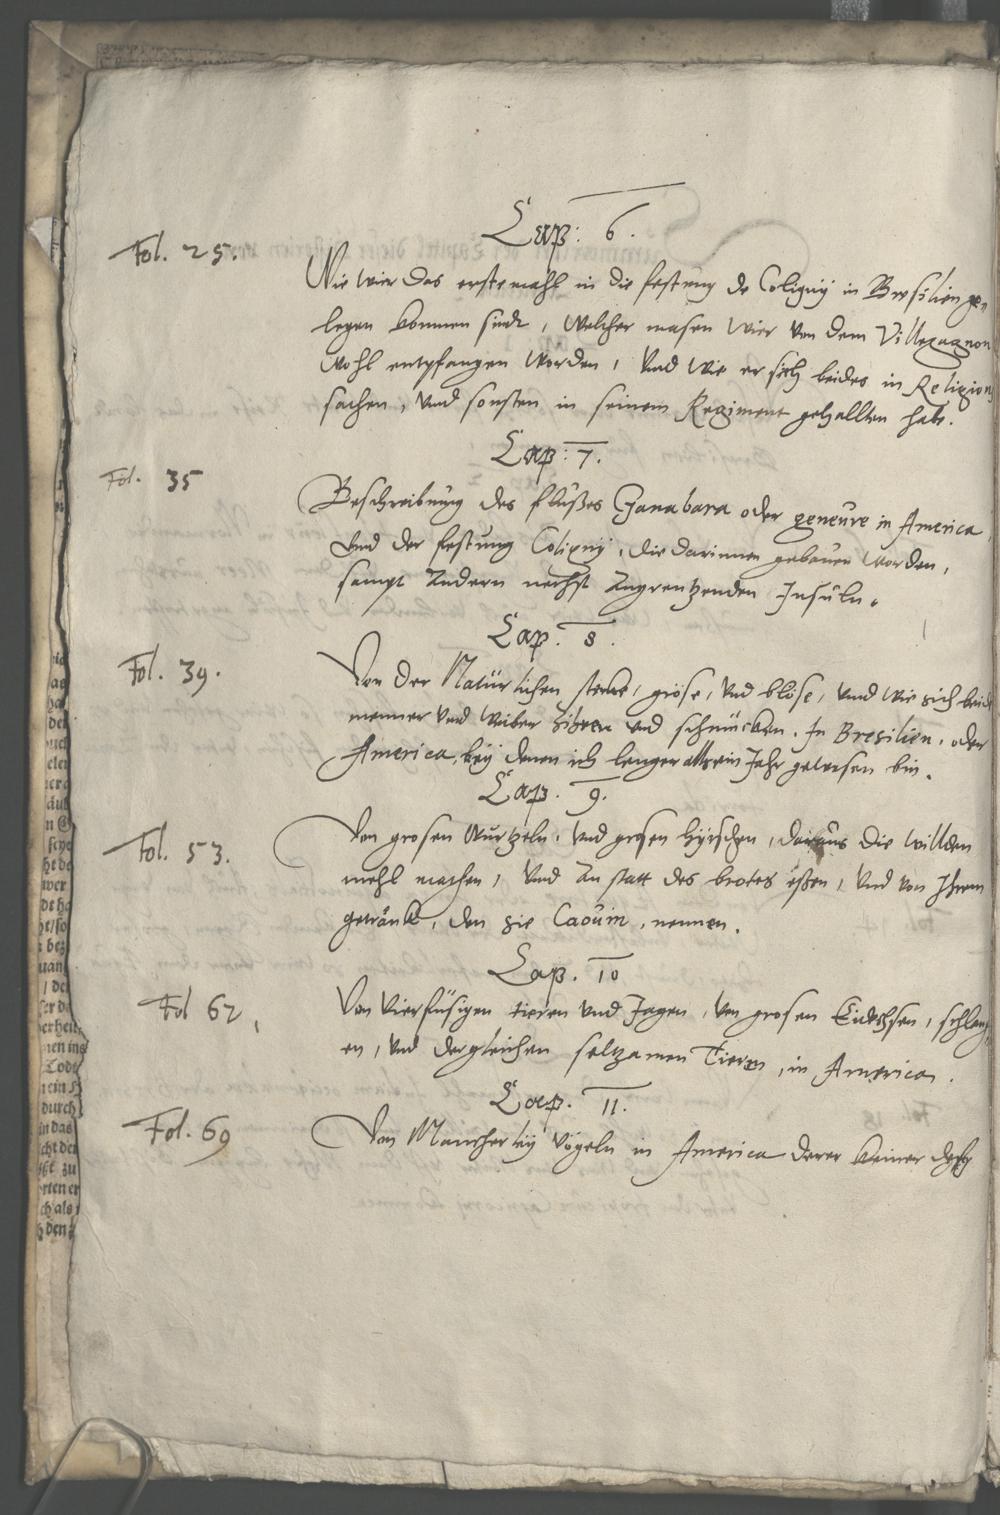 Cap: 6.
Fol. 25.
Wie wier das erste mahl in die festung de Coligny in Bresilien ge-
legen kommen sindt, welcher masen wier von dem Villegagnon
wohl entpfangen worden, vnd wie er sich beides in Religions
sachen, vnd sonsten in seinem Regiment gehallten habe.
Cap: 7.
Fol. 35
Beschreibung des flußes Ganabara oder geneure in America,
vnd der festung Coligny, die darinnen gebauen worden,
sampt andern nechst angrentzenden Insuln.
Cap. 8.
Fol. 39.
Von der Natürlichen sterke, gröse, vnd blöse, vnnd wie sich beide
menner vnd weiber zihren vnd schmücken. In Bresilien, oder
America, bey denen ich lenger alls ein Jahr gewesen bin.
Cap. 9.
Fol. 53.
Von grosen wurtzeln, vnd grosen hyrschen, daraus die willden
mehl machen, vnd an statt des brotes eßen, vnd von Ihrem
getränk, den sie Caouin, nennen.
Cap. 10
Fol 62,
Von vierfüsigen tieren vnd Jagen, von grosen Eidechsen, schlang-
en, vnd dergleichen seltzamen Tieren, in America.
Cap. 11.
Fol. 69
Von Mancherley vögeln in America derer keiner